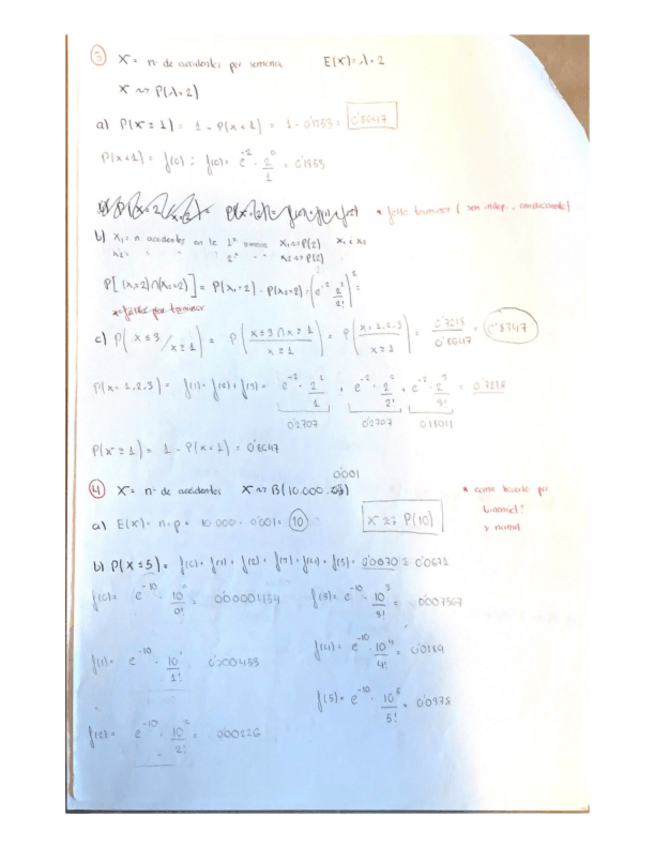 ③ X = nº de accidentes por semana E(X)=λ=2
X ~> P(λ=2)
a) P(X≥1) = 1 - P(X<1) = 1 - 0'1353 = 0'8647
P(X<1) = f(0) ; f(0) = e^-2 · 2^0/1 = 0'1353
b) P(X=2
* falta terminar ( son indep. condicionada)
b) X1 = n accidentes en la 1ª semana X1 ~> P(2) X1 i X2
X2 = " " " 2ª " " X2 ~> P(2)
P[(X1=2)∩(X2=2)] = P(X1=2) · P(X2=2) = (e^-2 · 2^2/2!)^2 =
* falta por terminar
c) P(X≤3 / X≥1) = P(X≤3 ∩ X≥1 / X≥1) = P(X=1,2,3 / X≥1) = 0'7218/0'8647 = 0'8347
P(X=1,2,3) = f(1) + f(2) + f(3) = e^-2 · 2^1/1 + e^-2 · 2^2/2! + e^-2 · 2^3/3! = 0'7218
0'2707 0'2707 0'1804
P(X≥1) = 1 - P(X<1) = 0'8647
0'001
④ X = nº de accidentes X ~> B(10.000,
* como hacerlo por
binomial?
y normal
a) E(X) = n·p = 10.000 · 0'001 = 10 X ~> P(10)
b) P(X≤5) = f(0) + f(1) + f(2) + f(3) + f(4) + f(5) = 0'0670 ≅ 0'0671
f(0) = e^-10 · 10^0/0! = 0'00001454 f(3) = e^-10 · 10^3/3! = 0'007567
f(4) = e^-10 · 10^4/4! = 0'0189
f(1) = e^-10 · 10^1/1! = 0'000453
f(5) = e^-10 · 10^5/5! = 0'0378
f(2) = e^-10 · 10^2/2! = 0'00226